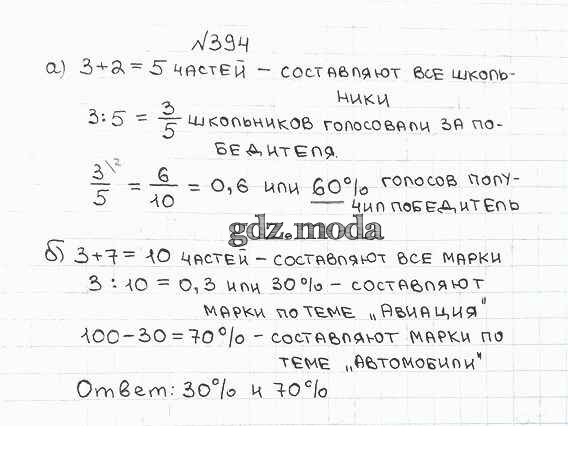 №394
а) 3+2=5 частей – составляют все школь-
ники
3:5 = 3/5 школьников голосовали за по-
бедителя.
3\2/5 = 6/10 = 0,6 или 60% голосов полу-
чил победитель
gdz.moda
б) 3+7=10 частей – составляют все марки
3 : 10 = 0,3 или 30% – составляют
марки по теме „Авиация"
100–30=70% – составляют марки по
теме „Автомобили"
Ответ: 30% и 70%